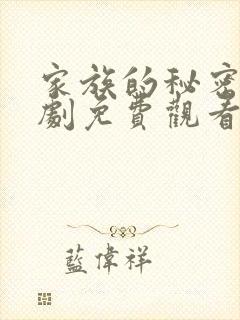 家族的秘密
劇免費觀看
藍偉祥